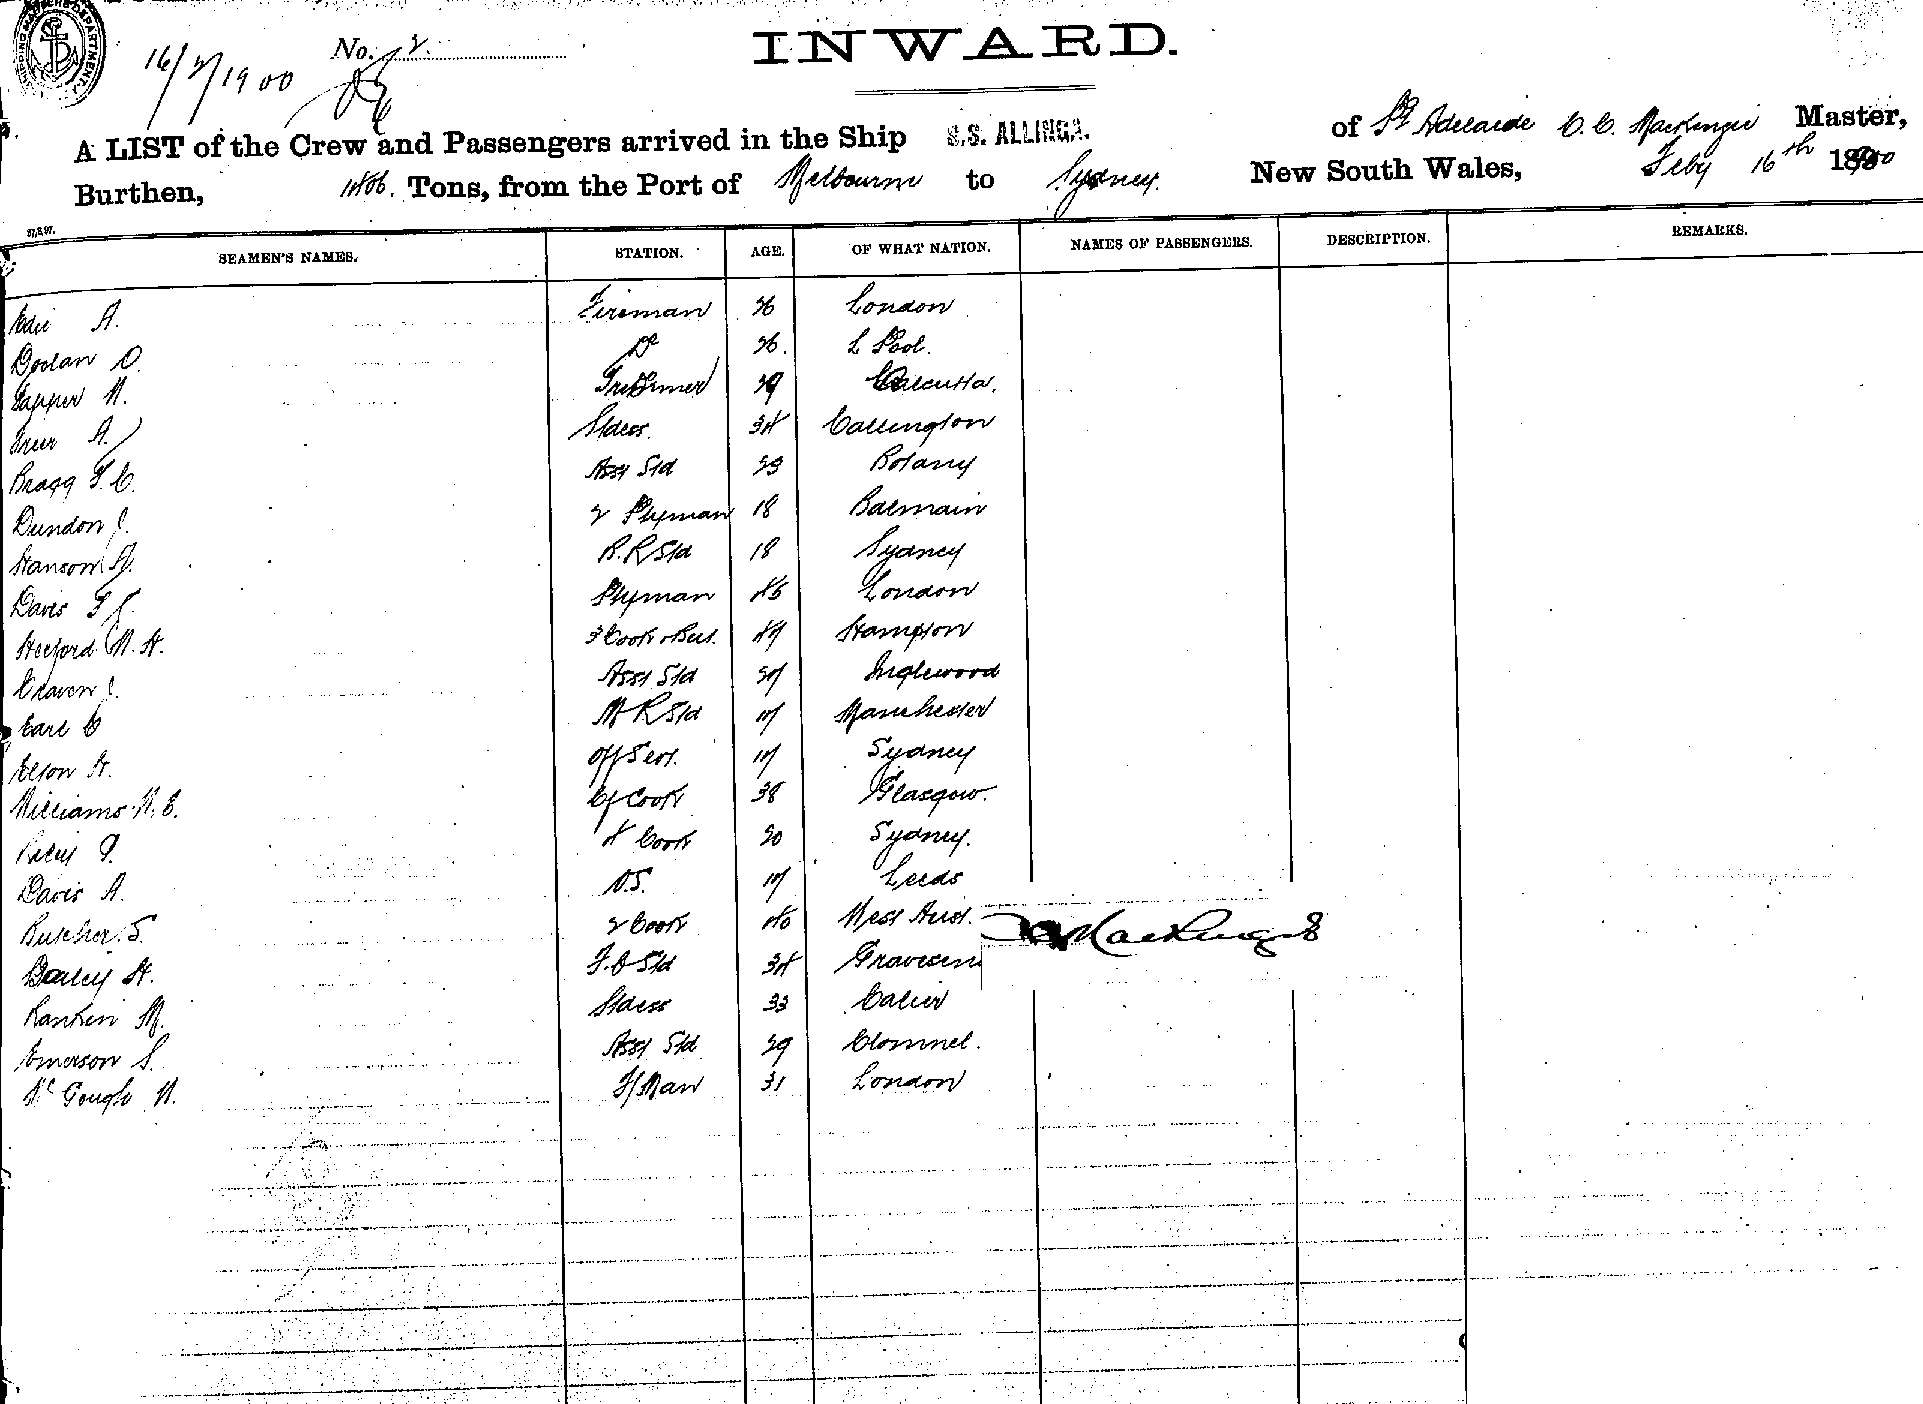 SHIPPING MASTER'S DEPARTMENT.
INWARD.
No. 2.
16/2/1900
A LIST of the Crew and Passengers arrived in the Ship S.S. ALLINGA. of Pt Adelaide C. C. MacKenzie Master,
Burthen, Tons, from the Port of Melbourne to Sydney. New South Wales, Feby 16th 1900
SEAMEN'S NAMES. STATION. AGE. OF WHAT NATION. NAMES OF PASSENGERS. DESCRIPTION. REMARKS.
Edie A. Fireman 26 London
Doolan O. Do 26. L Pool.
Tapper W. Trimmer 29 Calcutta.
Freer A. Stdess. 34 Callington
Bragg F. C. Asst Std 23 Botany
Dundon J. 2 Ptyman 18 Balmain
Hanson A. B.R Std 18 Sydney
Davis F J. Ptyman 45 London
Hecford W. H. 3 Cook & But. 47 Hampton
Craven J. Asst Std 27 Inglewood
Earl C M R Std 17 Manchester
Elson H. Off Sert. 17 Sydney
Williams W. E. Cf Cook 38 Glasgow.
Reily P. 4 Cook 20 Sydney.
Davis A. O.S. 17 Leeds
Butcher. S. 2 Cook 40 West Aust.
MacKenzie
Bailey H. F.C Std 34 Gravesen
Rankin M. Stdess 33
Emerson S. Asst Std 29 Clonmel.
Mc Gough W. F/Man 31 London